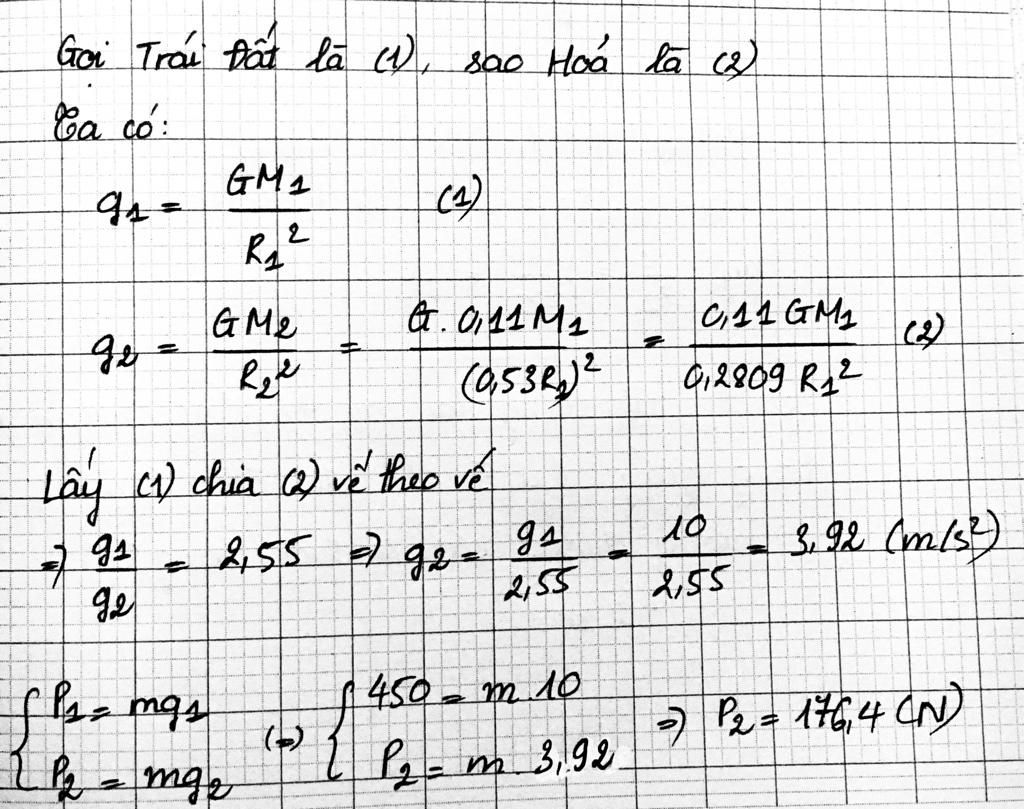 Gọi Trái Đất là (1), sao Hoả là (2)
Ta có:
g₁ = GM₁ / R₁² (1)
g₂ = GM₂ / R₂² = G. 0,11M₁ / (0,53R₁)² = 0,11 GM₁ / 0,2809 R₁² (2)
Lấy (1) chia (2) vế theo vế
=> g₁ / g₂ = 2,55 => g₂ = g₁ / 2,55 = 10 / 2,55 = 3,92 (m/s²)
{ P₁ = mg₁ (=) { 450 = m 10 => P₂ = 176,4 (N)
P₂ = mg₂ P₂ = m 3,92